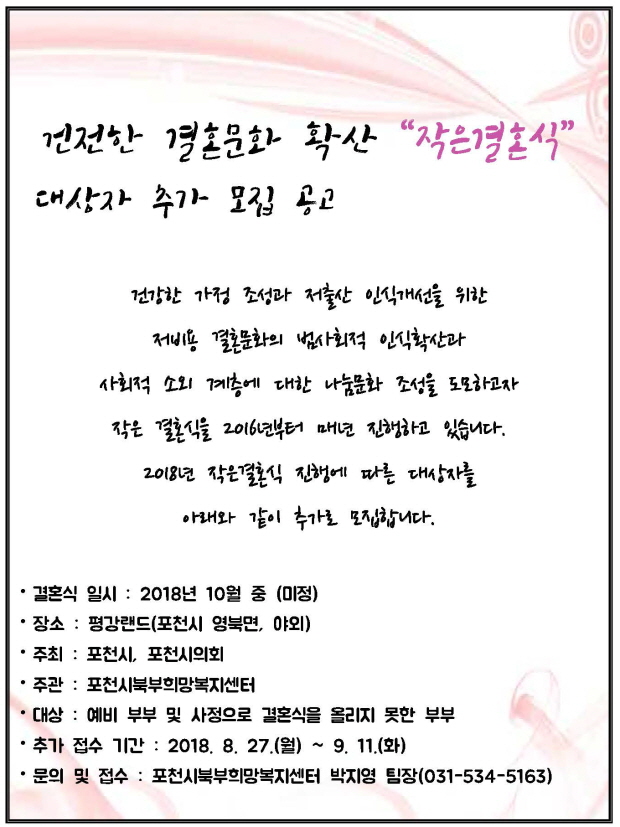 건전한 결혼문화 확산 “작은결혼식”
대상자 추가 모집 공고
건강한 가정 조성과 저출산 인식개선을 위한
저비용 결혼문화의 범사회적 인식확산과
사회적 소외 계층에 대한 나눔문화 조성을 도모하고자
작은 결혼식을 2016년부터 매년 진행하고 있습니다.
2018년 작은결혼식 진행에 따른 대상자를
아래와 같이 추가로 모집합니다.
• 결혼식 일시 : 2018년 10월 중 (미정)
• 장소 : 평강랜드(포천시 영북면, 야외)
• 주최 : 포천시, 포천시의회
• 주관 : 포천시북부희망복지센터
• 대상 : 예비 부부 및 사정으로 결혼식을 올리지 못한 부부
• 추가 접수 기간 : 2018. 8. 27.(월) ~ 9. 11.(화)
• 문의 및 접수 : 포천시북부희망복지센터 박지영 팀장(031-534-5163)